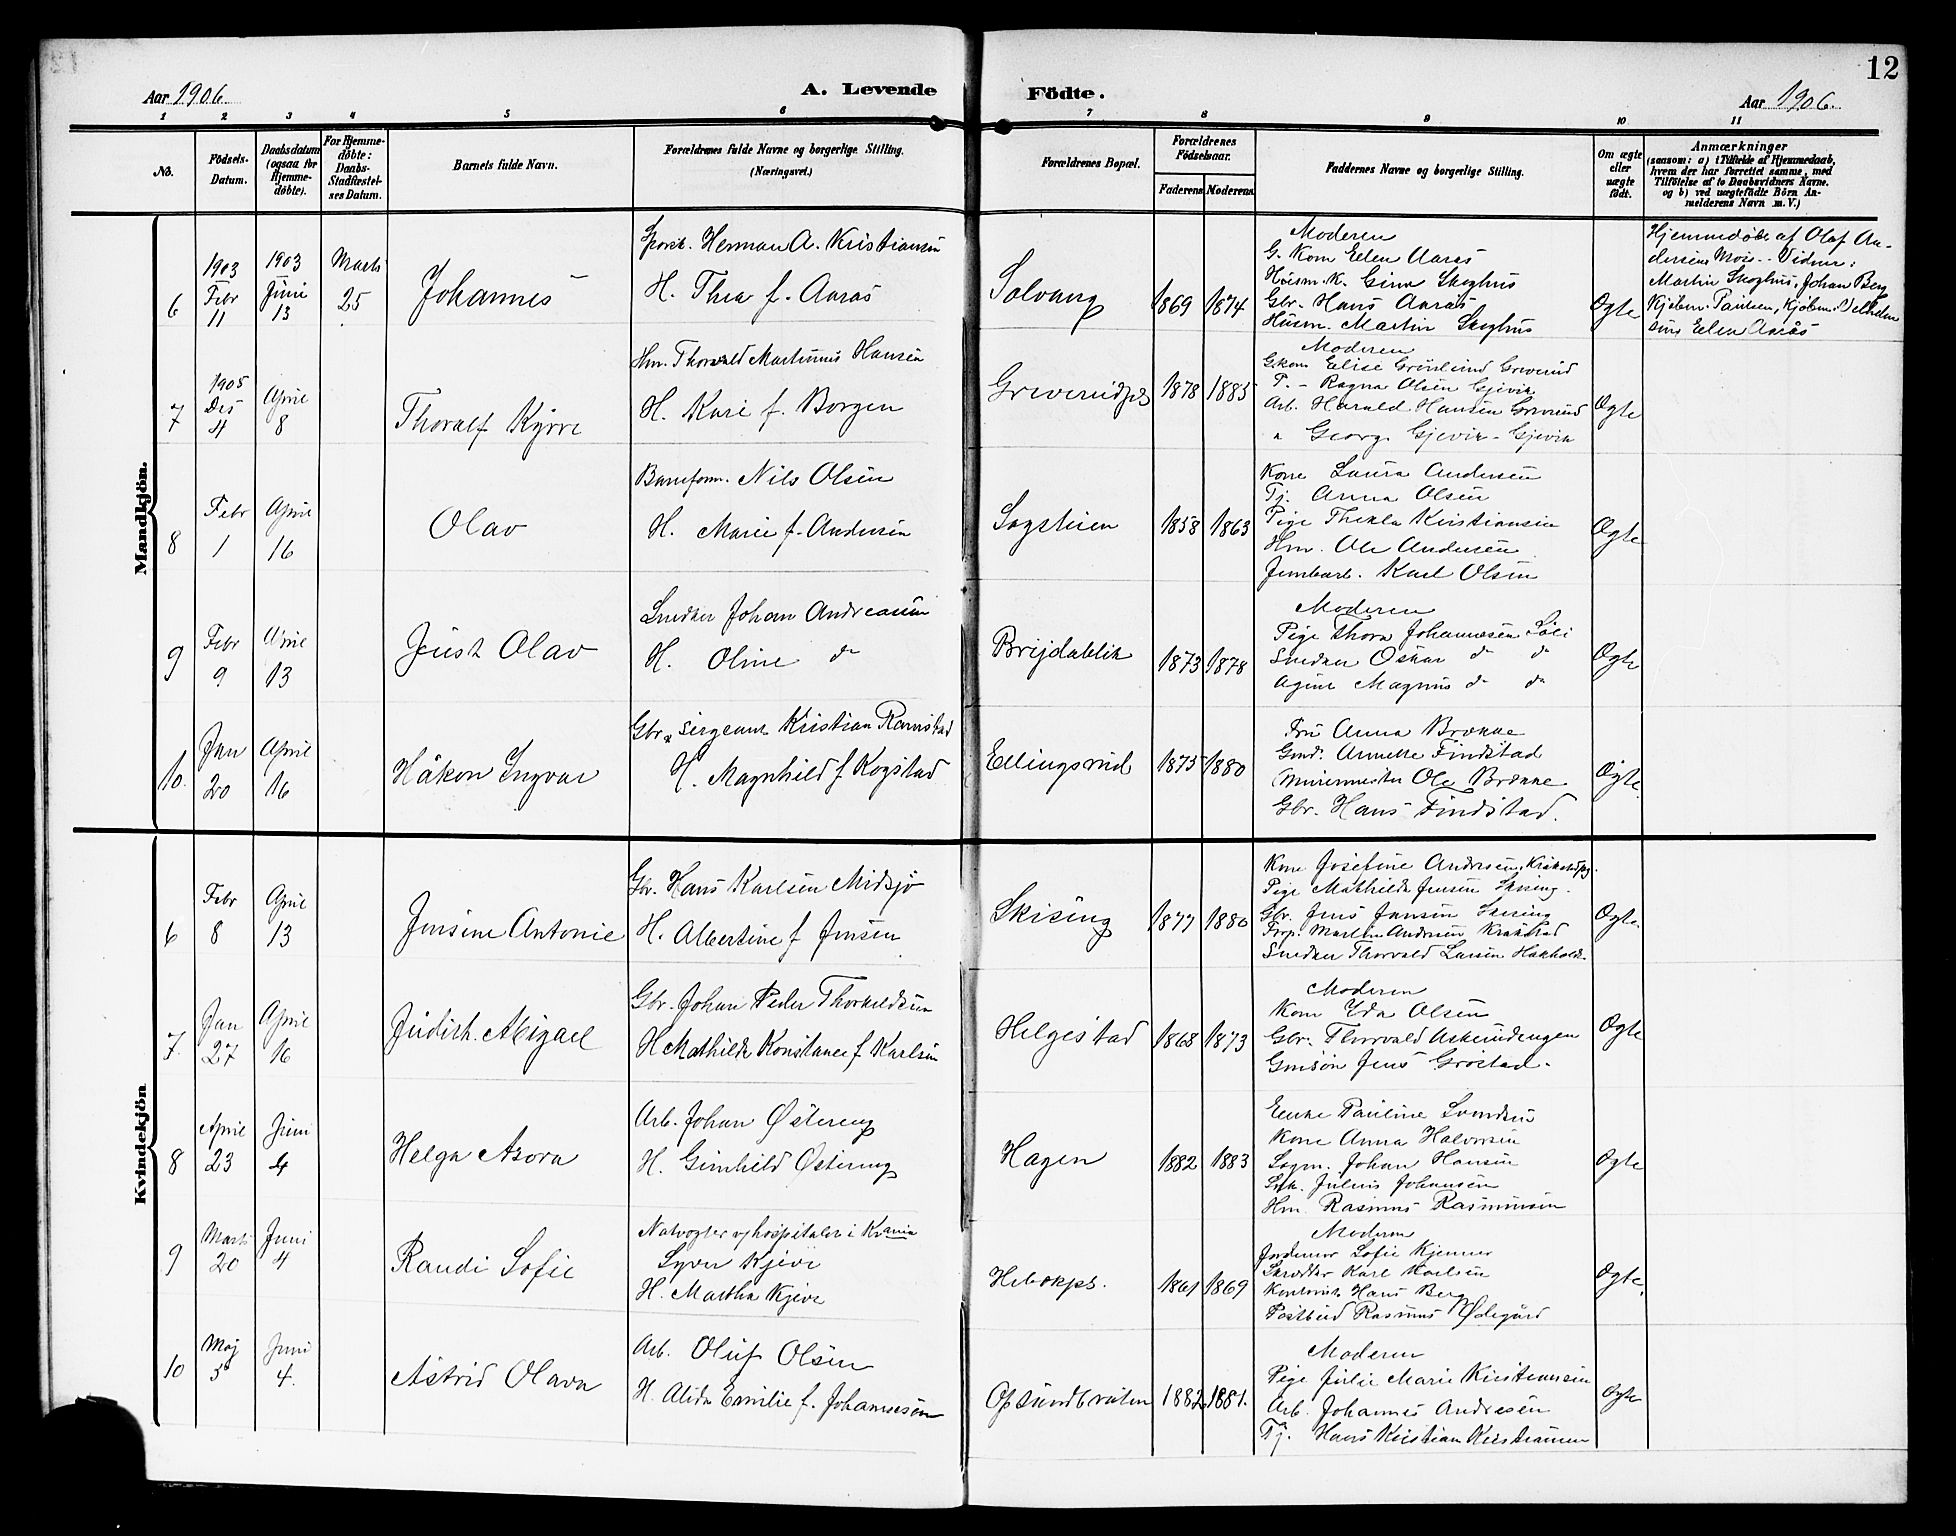 12
Aar 1906.
A. Levende Födte.
Aar 1906.
1 2 3 4 5 6 7 8 9 10 11
No.
Födsels-
Datum.
Daabsdatum
(ogsaa for
Hjemme-
döbte).
For Hjemme-
döbte:
Daabs-
Stadfæstel-
ses Datum.
Barnets fulde Navn.
Forældrenes fulde Navne og borgerlige Stilling.
(Næringsvei.)
Forældrenes Bopæl.
Forældrenes
Födselsaar.
Faderens Moderens
Faddernes Navne og borgerlige Stilling.
Om ægte
eller
uægte
födt.
Anmærkninger
(saasom: a) i Tilfælde af Hjemmedaab,
hvem der har forrettet samme, med
Tilföielse af to Daabsvidners Navne.
og b) ved uægtefödte Börn An-
melderens Navn m. V.)
Mandkjön.
6
1903
Febr
11
1903
Juni
13
Marts
25
Johannes
Herman A. Kristiansen
H. Thea f. Aaraas
Solvang
1869 1874
Moderen
G. Kone Elen Aaraas
Husm. K. Gina Skoghus
Gbr. Hans Aaraas
Husm. Martin Skoghus
Ægte
Hjemmedøbt af Olaf An-
dersen Mos - Vidner:
Martin Skoghus, Johan Berg
Kjøbm. Paulsen, Kjøbm.
Elen Aaraas
7
1905
Des
4
April
8
Thoralf Kyrre
Hm. Thorvald Martinius Hansen
H. Kari f. Borgen
1878 1885
Moderen
Gkone Elise Grönlund
P. - Ragna Olsen Gjevik
Arb. Harald Hansen
" Georg Gjevik - Gjevik
Ægte
8
Febr
1
April
16
Olav
Baneform. Nils Olsen
H. Marie f. Andersen
Sagstuen
1858 1863
Kone Laura Andersen
Tj. Anna Olsen
Pige Thekla Kristiansen
Hm. Ole Andersen
Jernbarb. Karl Olsen
Ægte
9
Febr
9
April
13
Just Olav
Snedker Johan Andreasen
H. Oline do
Brejdablik
1873 1878
Moderen
Pige Thora Johannesen Söli
Snedker Oskar do do
Agent Magnus do do
Ægte
10.
Jan
20
April
16
Håkon Ingvar
Gbr. & Sergeant Kristian Ramstad
H. Magnhild f. Kogstad
Ellingsrud
1875 1880
Fru Anna Brække
Gmd. Annette Findstad
Murermester Ole Brække
Gbr. Hans Findstad.
Ægte.
Kvindekjön
6
Febr
8
April
13
Jensine Antonie
Gbr. Hans Karlsen Midsjø
H. Albertine f Jensen
Skising
1877 1880
Kone Josefine Andresen,
Pige Mathilde Jensen Skising.
Gbr. Jens Jansen Skising
Frop. Martin Andresen Kraakstad
Snedker Thorvald Larsen
Ægte.
7.
Jan
27
April
16
Judith Abigael
Gbr. Johan Peder Thorvaldsen
H Mathilde Konstance f Karlsen
Helgestad
1868 1873
Moderen
Kone Eda Olsen
Gbr. Thorvald Askerudengen
Gmsön Jens Gröstad.
Ægte
8
April
23
Juni
4
Helga Asora
Arb. Johan Østereng
H. Gunhild Østereng
Hagen
1882 1883
Enke Pauline Svendsen
Kone Anna Halvorsen
Sagm. Johan Hansen
Julius Johansen
Hm. Rasmus Rasmussen
Ægte
9
Marts
20
Juni
4
Randi Sofie
Natvogter v/hospitalet i Krania
Syver Kjeve
H. Martha Kjeve
1861 1869
Moderen
Jordemor Sofie Kjenner
Skrædder Karl Karlsen
Kontorist Hans Berg
Postbud Rasmus Ødegård
Ægte.
10
Maj
5
Juni
4.
Astrid Olava
Arb. Oluf Olsen
H. Alida Emilie f. Johannesen
Opsundbraten
1882 1881.
Moderen
Pige Julie Marie Kristiansen
Arb. Johannes Andresen
Tj. Hans Kristian Kristiansen
Ægte